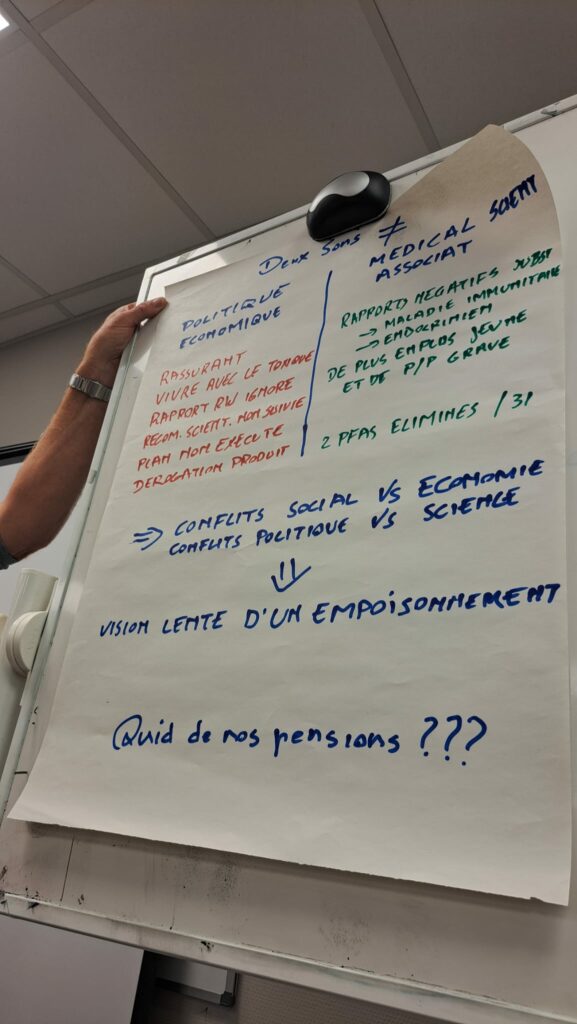 Deux sons ≠
POLITIQUE
ECONOMIQUE
RASSURANT
VIVRE AVEC LE TOXIQUE
RAPPORT RW IGNORE
RECOM. SCIENT. NON SUIVIE
PLAN NON EXECUTE
DEROGATION PRODUIT
MEDICAL SCIENT
ASSOCIAT
RAPPORTS NEGATIFS SUBST
→ MALADIE IMMUNITAIRE
→ ENDOCRINIEN
DE PLUS EMPLOS JEUNE
ET DE P/P GRAVE
2 PFAS ELIMINES / 31
⇒ CONFLITS SOCIAL VS ECONOMIE
CONFLITS POLITIQUE VS SCIENCE
⇓
VISION LENTE D'UN EMPOISONNEMENT
Quid de nos pensions ???